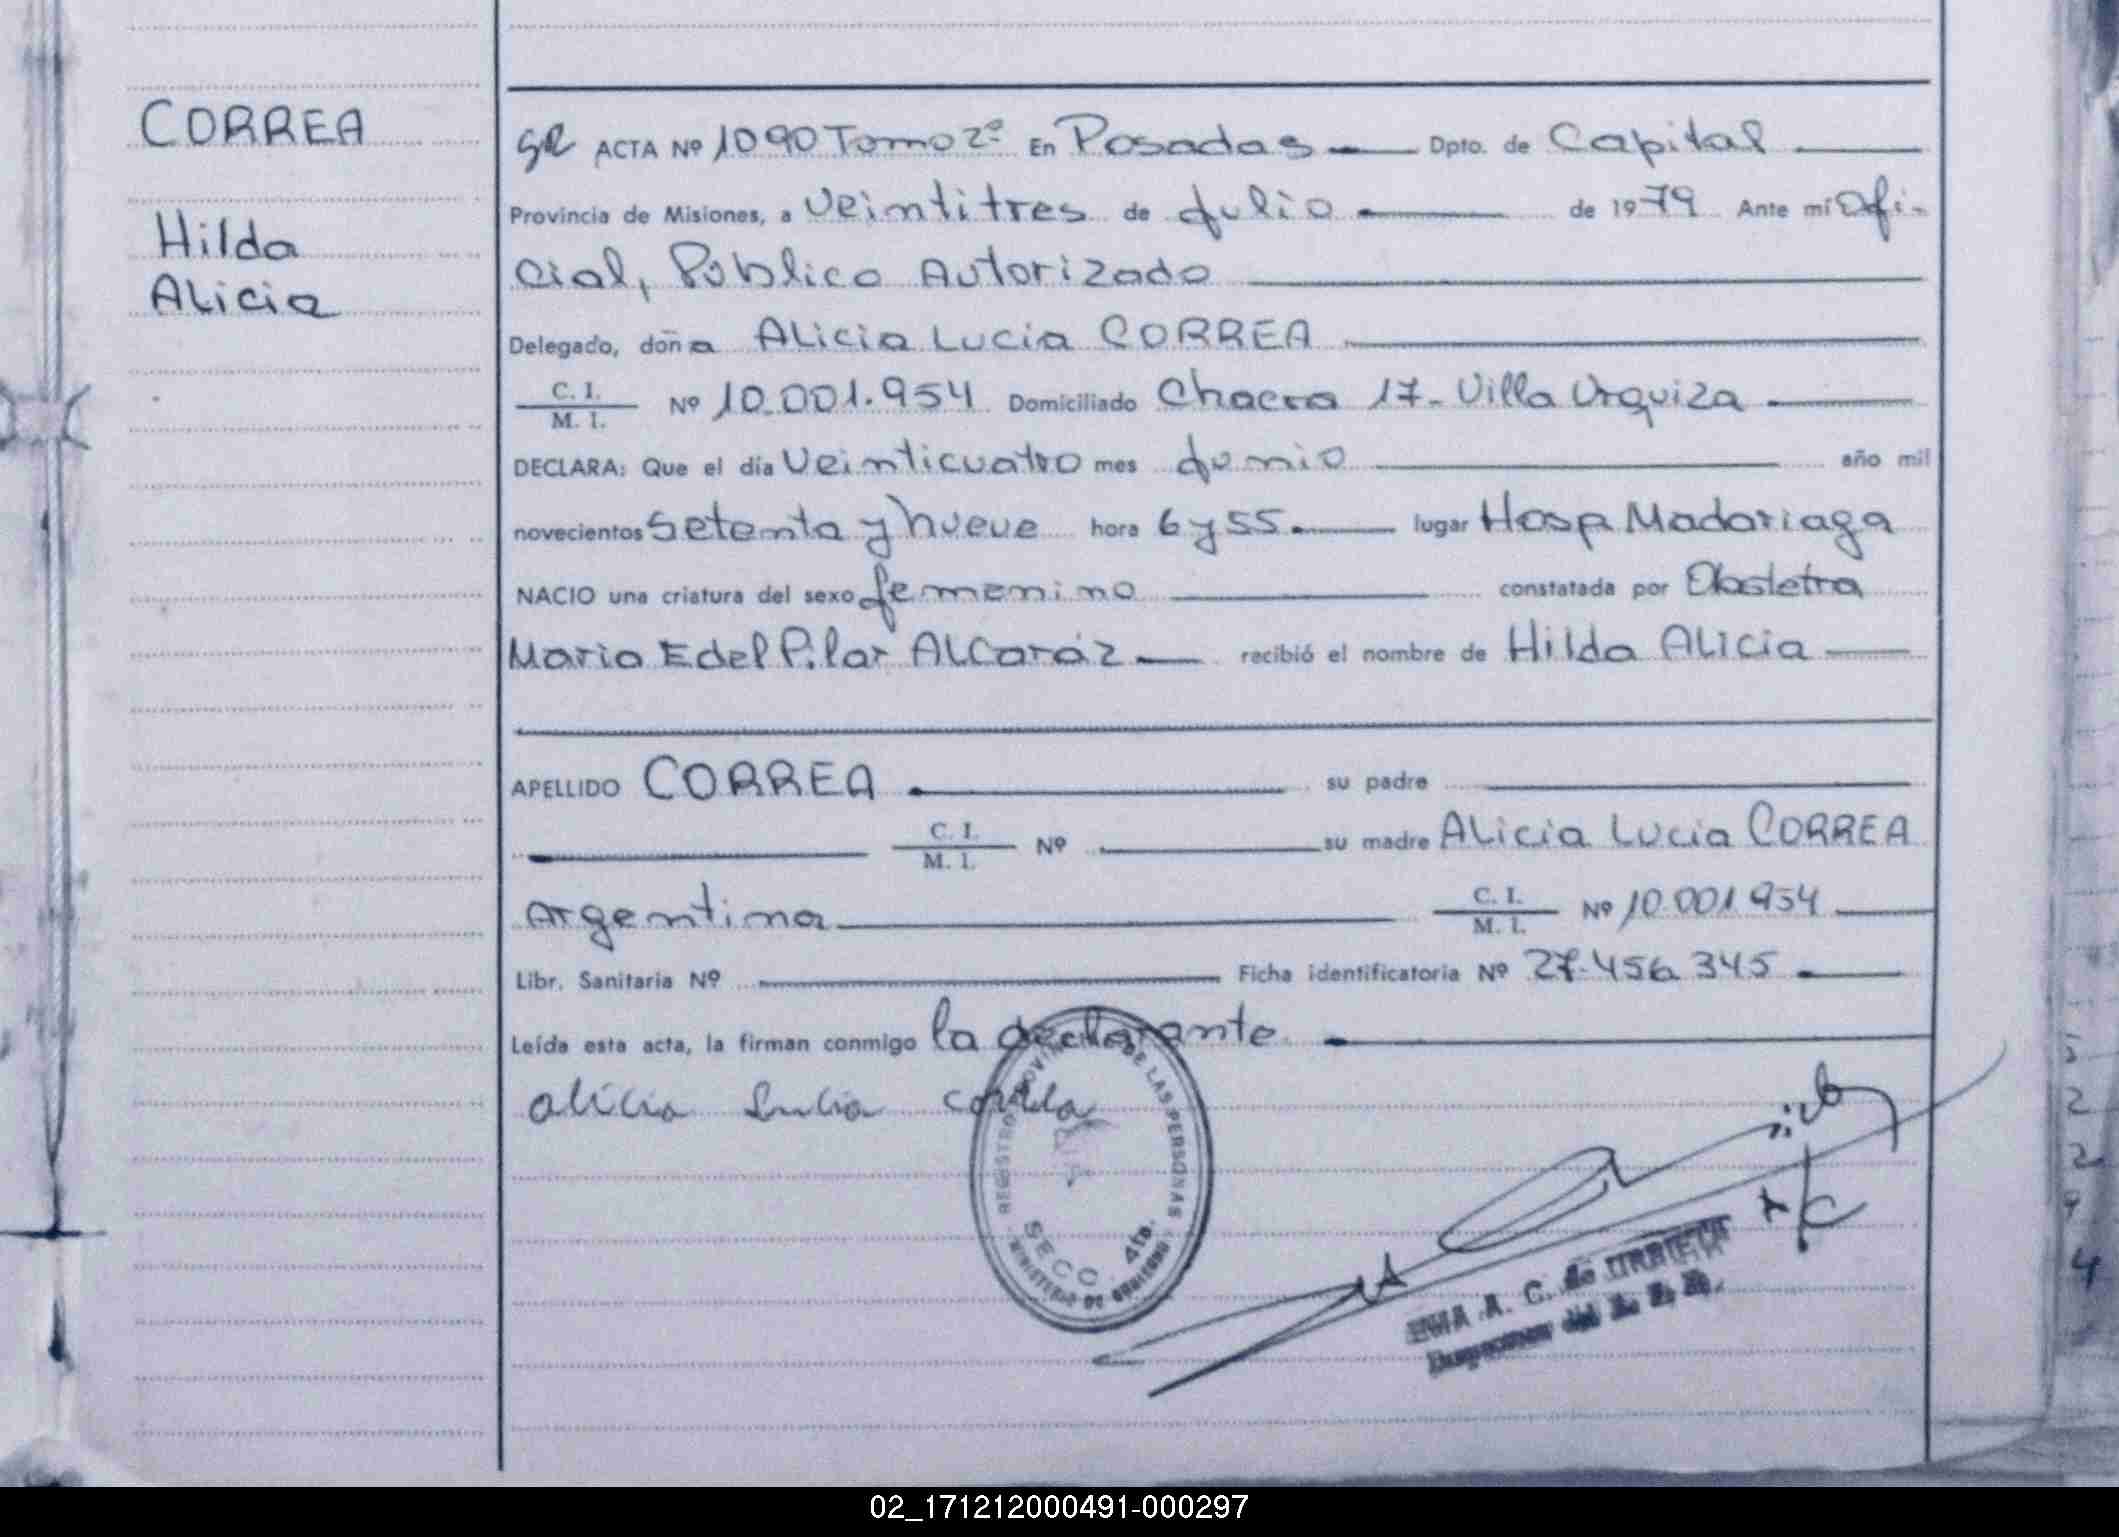 CORREA
Hilda
Alicia
ACTA Nº 1090 Tomo 2º En Posadas Dpto. de Capital
Provincia de Misiones, a Veintitres de Julio de 1979 Ante mí Ofi-
cial, Público Autorizado
Delegado, doña Alicia Lucia CORREA
C. I.
M. I. Nº 10.001.954 Domiciliado Chacra 17- Villa Urquiza
DECLARA: Que el día Veinticuatro mes Junio año mil
novecientos Setenta y nueve hora 6 y 55 lugar Hosp Madariaga
NACIO una criatura del sexo femenino constatada por Obstetra
Maria E del Pilar Alcaráz recibió el nombre de Hilda Alicia
APELLIDO CORREA su padre
C. I.
M. I. Nº su madre Alicia Lucia CORREA
Argentina C. I.
M. I. Nº 10.001.954
Libr. Sanitaria Nº Ficha identificatoria Nº 27.456.345
Leída esta acta, la firman conmigo la declarante
alicia Lucia correa
REGISTRO PROVINCIAL DE LAS PERSONAS
MINISTERIO DE GOBIERNO
SECC. 4ta.
A. C. de URRIETA
02_171212000491-000297